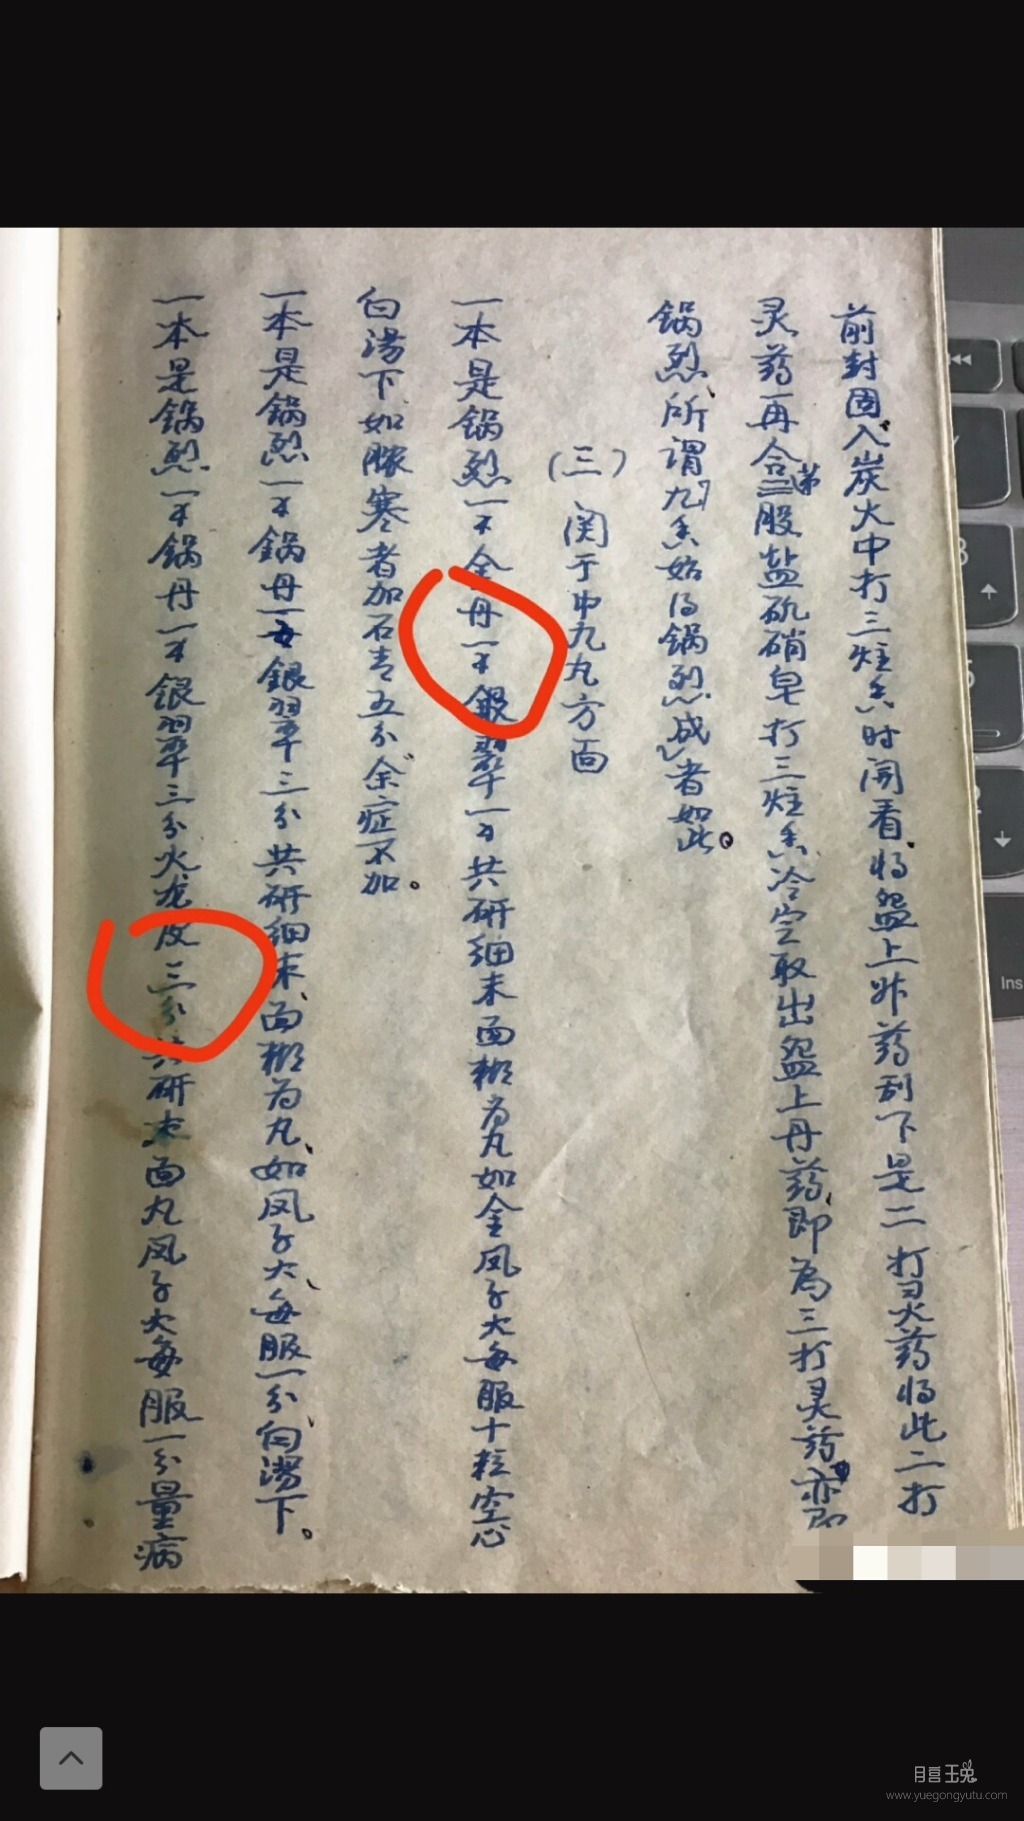 前封固入炭火中打三炷香时开看将盌上升药刮下是二打灵药将此二打
灵药再合第三股盐矾硝皂打三炷香冷定取出盌上丹药即为三打灵药亦即
锅烈所谓九香始得锅烈成者如此。
(三)関于中九丸方面
一本是锅烈一不金丹一不銀翠一才共研细末面糊为丸如金凤子大每服十粒空心
白湯下如脓寒者加石青五分余症不加。
一本是锅烈一才锅丹一才銀翠三分共研细末面糊为丸如凤子大每服一分白湯下。
一本是锅烈一才锅丹一才银翠三分火龙皮三分共研末面丸凤子大每服一分量病
Ins
月宫玉兔
www.yuegongyutu.com